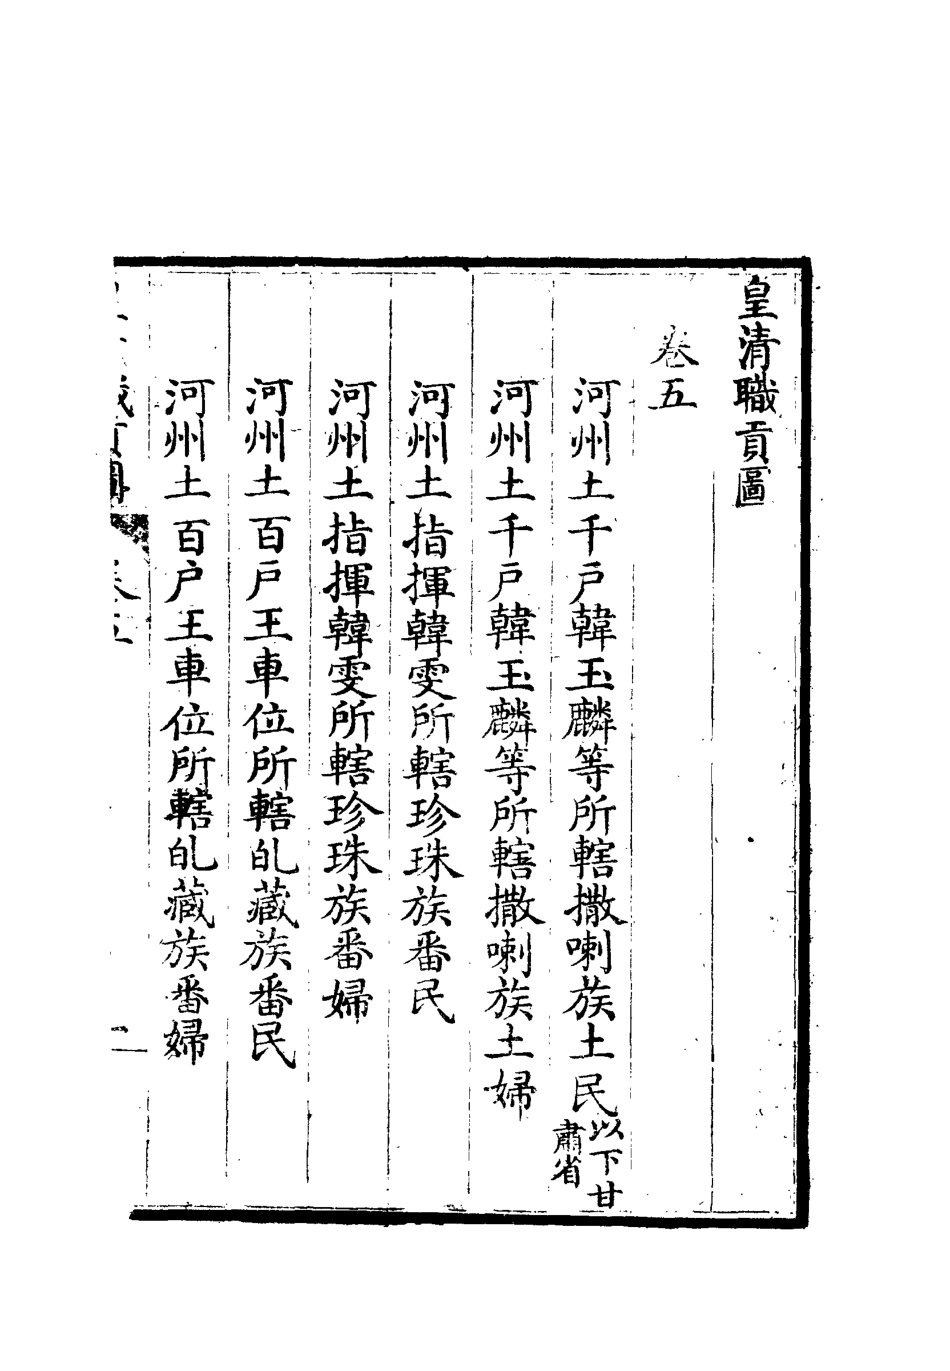 皇清職貢圖
卷五
河州土千戶韓玉麟等所轄撒喇族土民以下甘肅省
河州土千戶韓玉麟等所轄撒喇族土婦
河州土指揮韓雯所轄珍珠族番民
河州土指揮韓雯所轄珍珠族番婦
河州土百戶王車位所轄癿藏族番民
河州土百户王車位所轄癿藏族番婦